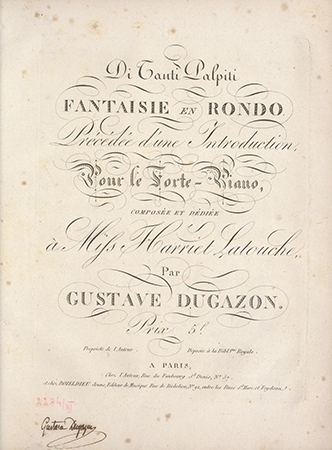 Di Tanti Palpiti
FANTAISIE EN RONDO,
Précédée d'une Introduction,
Pour le Forte-Piano,
COMPOSÉE ET DÉDIÉE
à Miss Harriet Latouche,
Par
GUSTAVE DUGAZON.
Prix 5f
Propriété de l'Auteur. Déposée à la Bibl.que Royale.
A PARIS,
Chez l'Auteur, Rue du Faubourg St Denis, No
et chez BOIELDIEU Jeune, Editeur de Musique Rue de Richelieu, No 92, entre les Rues St Marc et Feydeau.
Gustave Dugazon